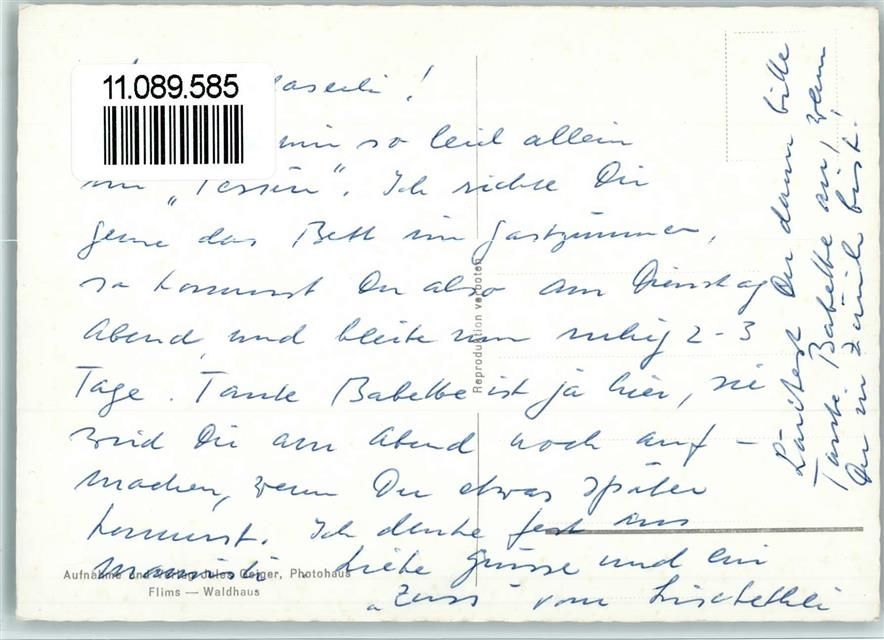 11.089.585
!
mir so leid allein
im „Tessin“. Ich richte Dir
gerne das Bett im Gastzimmer,
so kommst Du also am Dienstag
Abend und bleibe nun ruhig 2-3
Tage. Tante Babette ist ja hier, sie
wird Dir am Abend noch auf-
machen, wenn Du etwas später
kommst. Ich denke fest ans
Liebe Grüsse und ein
vom Lisbethli
Läutest Du dann bitte
Tante Babette an, wenn
Du in Zürich bist.
Reproduktion verboten
Aufnahme und Verlag Jules Geiger, Photohaus
Flims — Waldhaus